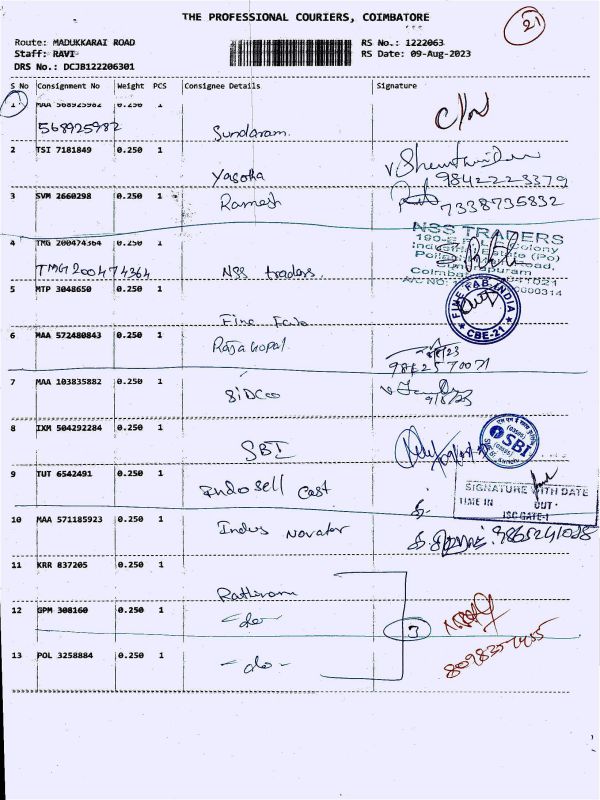 21
THE PROFESSIONAL COURIERS, COIMBATORE
Route: MADUKKARAI ROAD
Staff: RAVI
DRS No.: DCJB122206301
RS No.: 1222063
RS Date: 09-Aug-2023
S No Consignment No Weight PCS Consignee Details Signature
1 MAA 568925982 0.250 1
568925982 Sundaram
2 TSI 7181849 0.250 1
Yasotha 9842223379
3 SVM 2660298 0.250 1 Ramesh 7338735832
4 TMG 200474364 0.250 1
TMG200474364 NSS traders.
NSS TRADERS
Industrial Estate (Po)
Coimbatore
5 MTP 3048650 0.250 1
Fine Fab
FINE FAB INDIA
CBE-21
6 MAA 572480843 0.250 1 Rajagopal
7 MAA 103835882 0.250 1
SIDCO 9/8/23
8 IXM 504292284 0.250 1
SBI
SBI
9 TUT 6542491 0.250 1
Indo sell Cast
SIGNATURE WITH DATE
TIME IN OUT
ISC GATE-1
10 MAA 571185923 0.250 1 Indus Novator 9865241028
11 KRR 837205 0.250 1
Rathinam
12 GPM 308160 0.250 1 -do-
3
13 POL 3258884 0.250 1 -do-